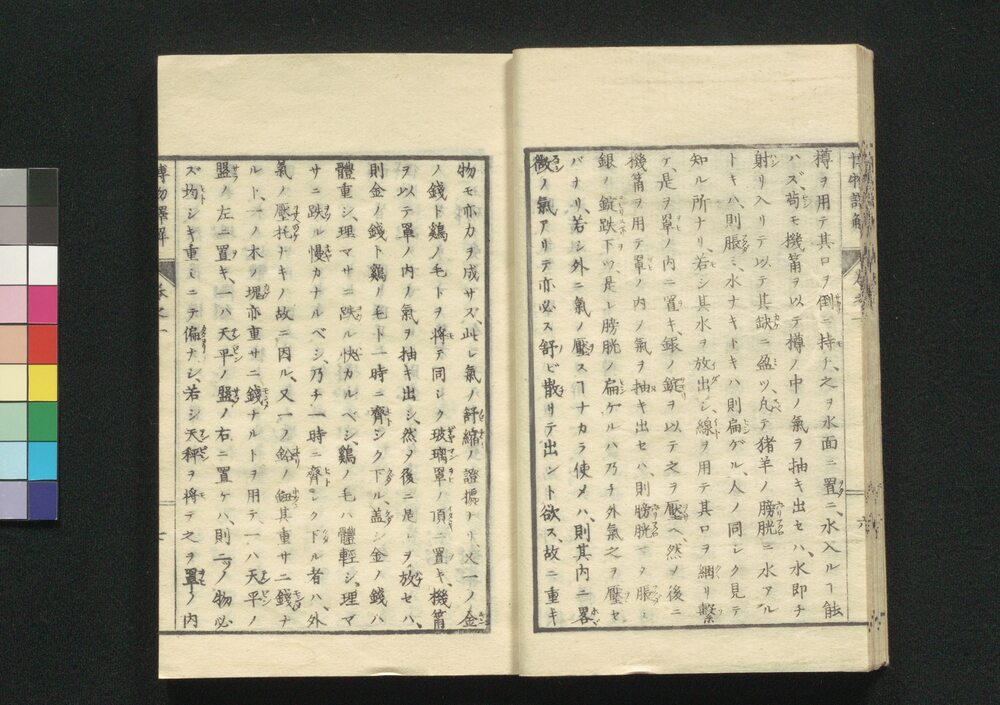 博物譯解 巻之一 六
樽ヲ用テ其口ヲ倒ニ持チ、之ヲ水面ニ置ニ、水入ルヿ能
ハズ、苟モ機筩ヲ以テ樽ノ中ノ氣ヲ抽キ出セハ、水即チ
射リ入リテ以テ其缺ニ盈ツ、凡テ猪羊ノ膀胱ニ水アル
トキハ、則脹ミ、水ナキトキハ則扁グル、人ノ同シク見テ
知ル所ナリ、若シ其水ヲ放出シ、線ヲ用テ其口ヲ綑リ繋
ケ、是ヲ罩ノ内ニ置キ、鉛ノ錠ヲ以テ之ヲ壓ヘ、然ノ後ニ
機筩ヲ用テ、罩ノ内ノ氣ヲ抽キ出セハ、則膀胱ㇵ脹レ
銀ノ錠跌下ツ、是レ膀胱ノ扁ゲルハ乃チ外氣之ヲ壓セ
バナリ、若シ外ニ氣ノ壓スヿナカラ使メハ、則其内ニ畧
微ノ氣アリテ亦必ス舒ビ散リテ出ント欲ス、故ニ重キ
物モ亦力ヲ成サズ、此レ氣ノ舒縮ノ證據ナリ、又一ノ金
ノ錢ト鷄ノ毛トヲ将テ同シク玻璃罩ノ頂ニ置キ、機筩
ヲ以テ罩ノ内ノ氣ヲ抽キ出シ、然ヲ後ニ是レヲ放セハ、
則金ノ錢ト鷄ノ毛ト一時ニ齊シク下ル、盖シ金ノ錢ハ
體重シ、理マサニ跌ル快カルベシ、鷄ノ毛ハ體輕シ、理マ
サニ跌ル慢カナルベシ、乃チ一時ニ齊シク下ル者ハ、外
氣ノ壓托ナキノ故ニ因ル、又一ノ鉛ノ鈕其重サ二錢ナ
ルト、一ノ木ノ塊亦重サニ錢ナルトヲ用テ、一ハ天平ノ
盤ノ左ニ置キ、一ハ天平ノ盤ノ右ニ置ケハ、則二ノ物必
ズ均シキ重ミニテ偏ナシ、若シ天秤ヲ将テ之ヲ罩ノ内
博物譯解 巻之一 七